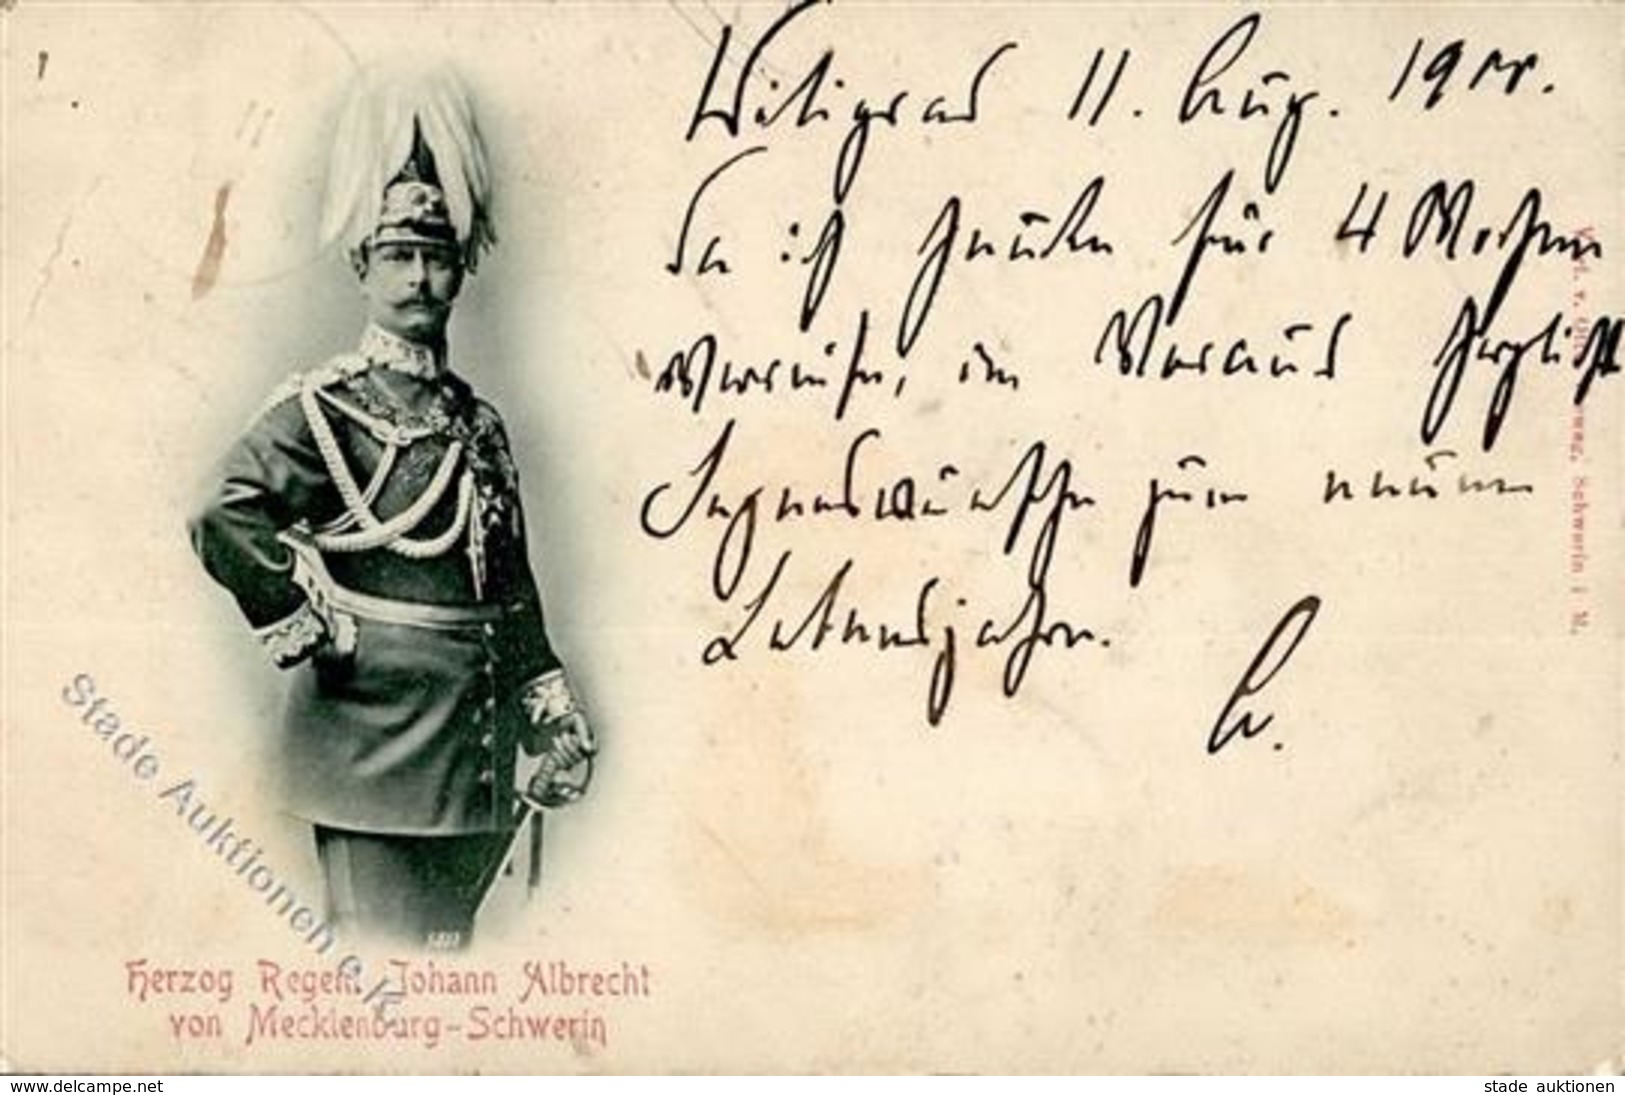 Wiligrad 11. Aug. 1900.
Da ich heute für 4 Wochen
verreise, im Voraus herzlichst
Segenswünsche zum neuen
Lebensjahre.
A.
Schwerin i. M.
Stade Auktionen e.K.
Herzog Regent Johann Albrecht
von Mecklenburg-Schwerin
www.delcampe.net
stade auktionen